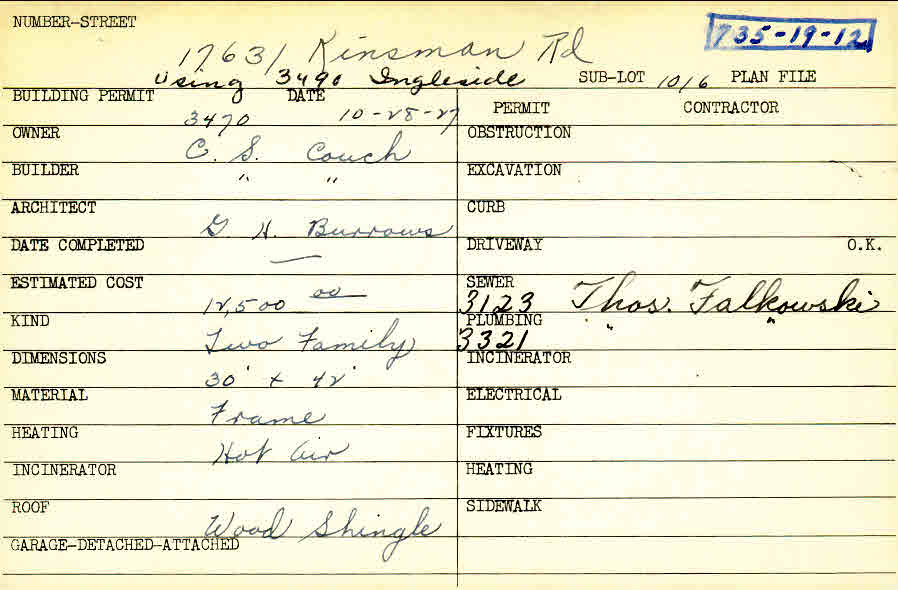 NUMBER-STREET
17631 Kinsman Rd
735-19-12
Using 3490 Ingleside SUB-LOT 1016 PLAN FILE
BUILDING PERMIT 3470 DATE 10-28-27
PERMIT CONTRACTOR
OWNER C. S. Couch
OBSTRUCTION
BUILDER " "
EXCAVATION
ARCHITECT G. H. Burrows
CURB
DATE COMPLETED —
DRIVEWAY O.K.
ESTIMATED COST 12,500 00
SEWER 3123 Thos. Falkowski
KIND Two Family
PLUMBING 3321 " "
DIMENSIONS 30' x 42'
INCINERATOR
MATERIAL Frame
ELECTRICAL
HEATING Hot Air
FIXTURES
INCINERATOR
HEATING
ROOF Wood Shingle
SIDEWALK
GARAGE-DETACHED-ATTACHED